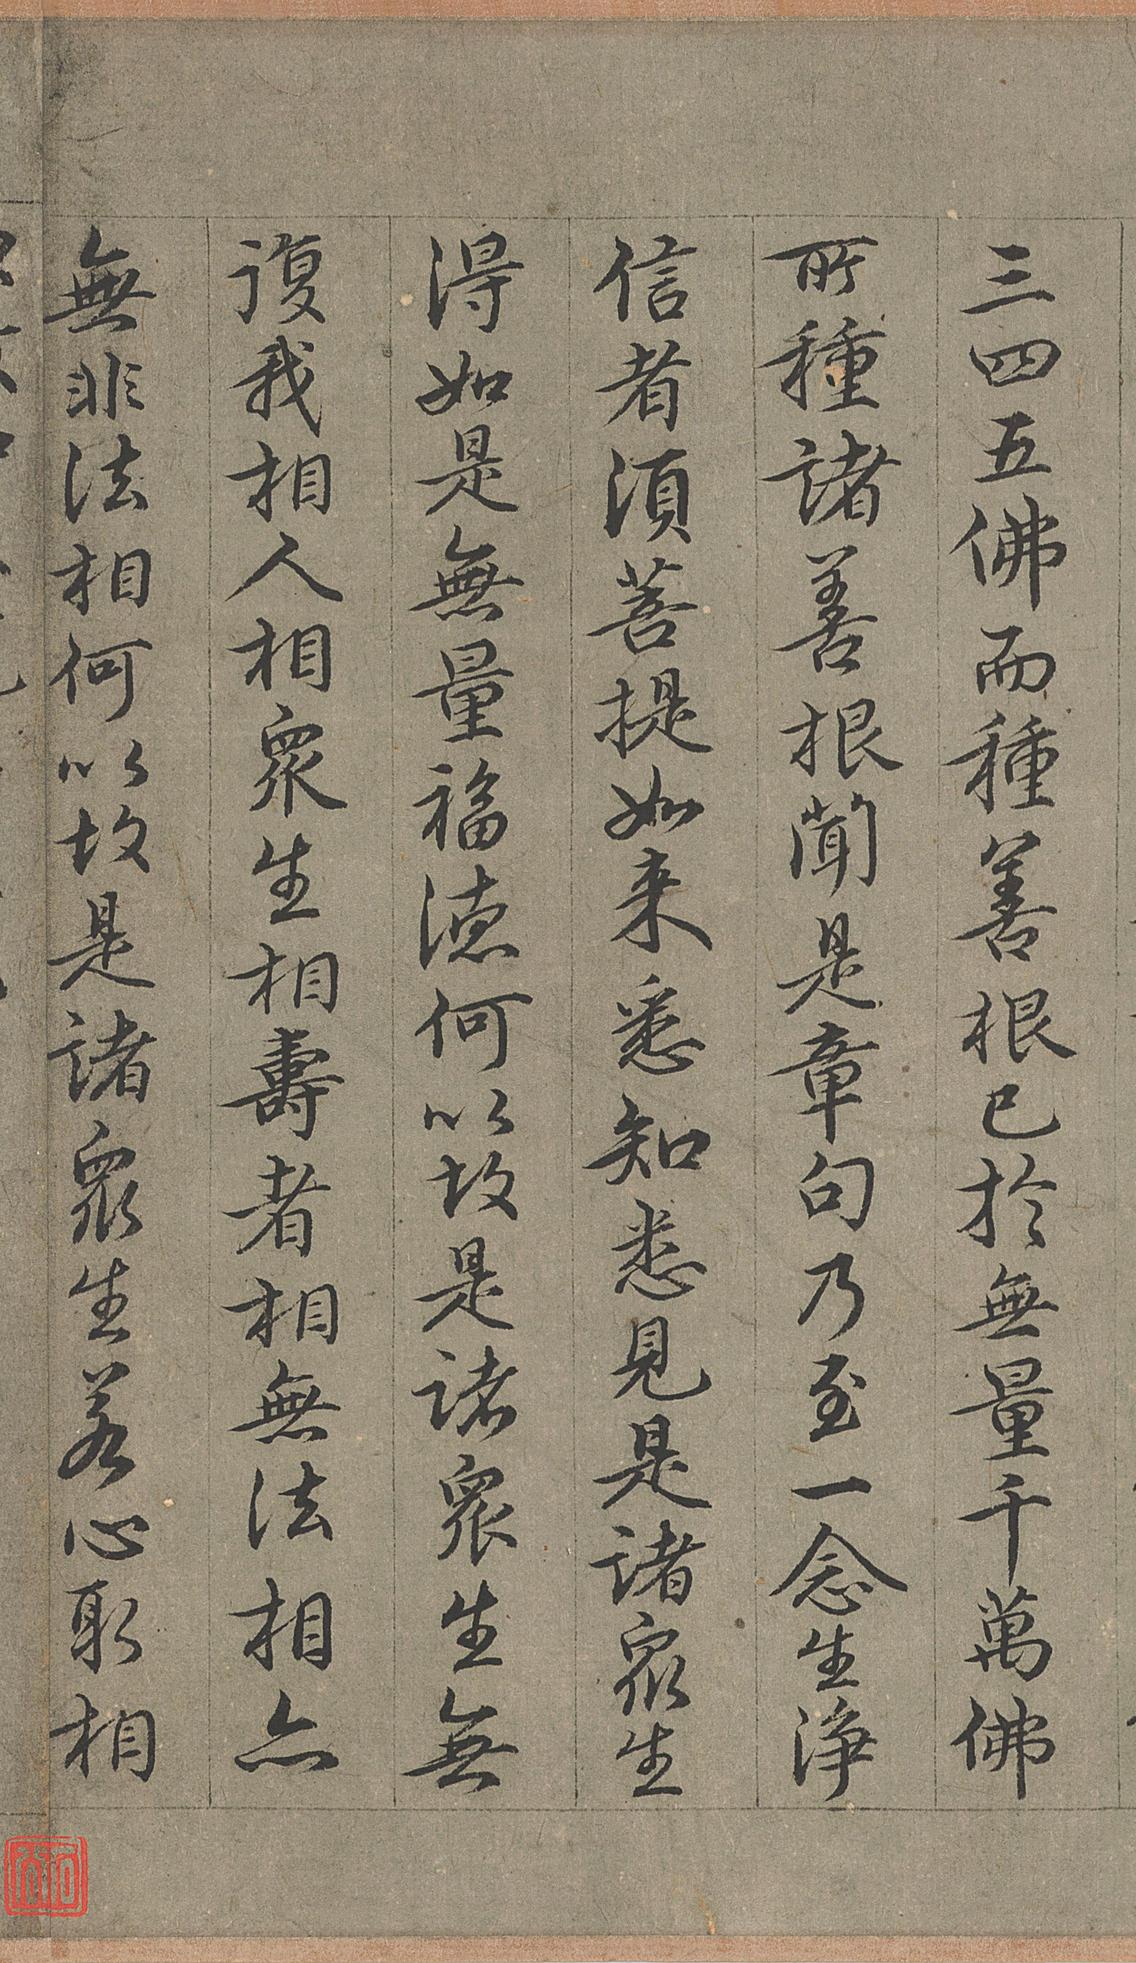 三四五佛而種善根已於無量千萬佛
所種諸善根聞是章句乃至一念生淨
信者須菩提如来悉知悉見是諸衆生
得如是無量福德何以故是諸衆生無
復我相人相衆生相壽者相無法相亦
無非法相何以故是諸衆生若心取相